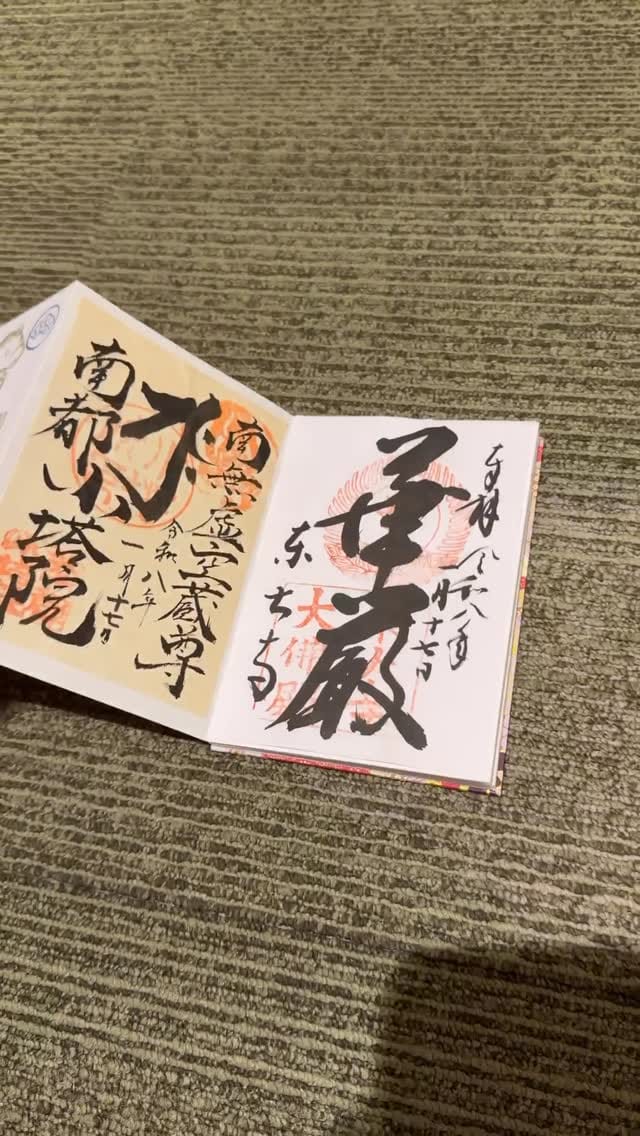 奉拝 令和八年
一月十七日
華厳
東大寺
大佛殿
南無虚空蔵尊
令和八年
一月十七日
南都
小塔院